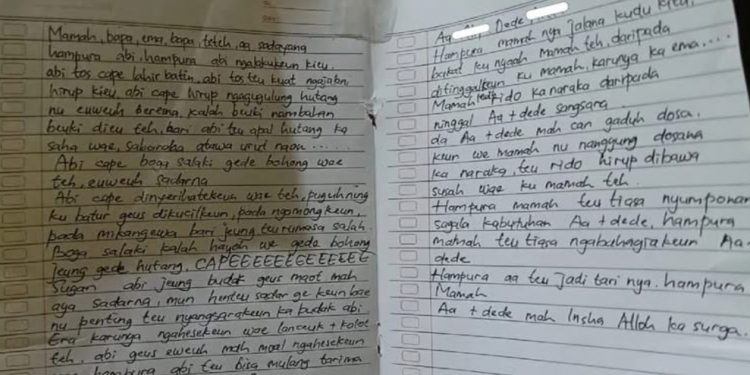 Mamah, bapa, ema, bapa, teteh, aa sadayana
hampura abi, hampura abi ngalakukeun kieu.
abi tos cape lahir batin, abi tos teu kuat ngajalan
hirup kieu, abi cape hirup nanggulung hutang
nu euweuh berena, kalah beuki nambahan
beuki dieu teh, bari abi teu apal hutang ka
saha wae, sabaraha atawa urut naon .....
Abi cape boga salaki gede bohong wae
teh, euweuh sadarna
Abi cape dinyerihatekeun wae teh, puguh ning
ku batur geus dikucilkeun, pada ngomongkeun,
pada mikangewa bari jeung teu rumasa salah.
Boga salaki kalah hayoh we gede bohong
jeung gede hutang, CAPEEEEEEEEEEEEE
Sugan abi jeung budak geus maot mah
aya sadarna, mun henteu sadar ge keun bae
nu penting teu nyangsarakeun ka budak abi
Era karunya ngahesekeun wae lanceuk + kolot
teh, abi geus euweuh mah moal ngahesekeun
hampura abi teu bisa mulang tarima
Aa Dede
Hampura mamah nya jalana kudu kieu,
bakat ku nyaah mamah teh, daripada
ditinggalkeun ku mamah, karunya ka ema....
Mamah rido ka naraka daripada
ninggal Aa + dede sangsara
da Aa + dede mah can gaduh dosa,
keun we mamah nu nanggung dosana
ka naraka, teu rido hirup dibawa
susah wae ku mamah teh.
Hampura mamah teu tiasa nyumponan
sagala kabutuhan Aa + dede, hampura
mamah teu tiasa ngabahagiakeun Aa-
dede
Hampura aa teu jadi tari nya. hampura
Mamah
Aa + dede mah Insha Alloh ka surga.